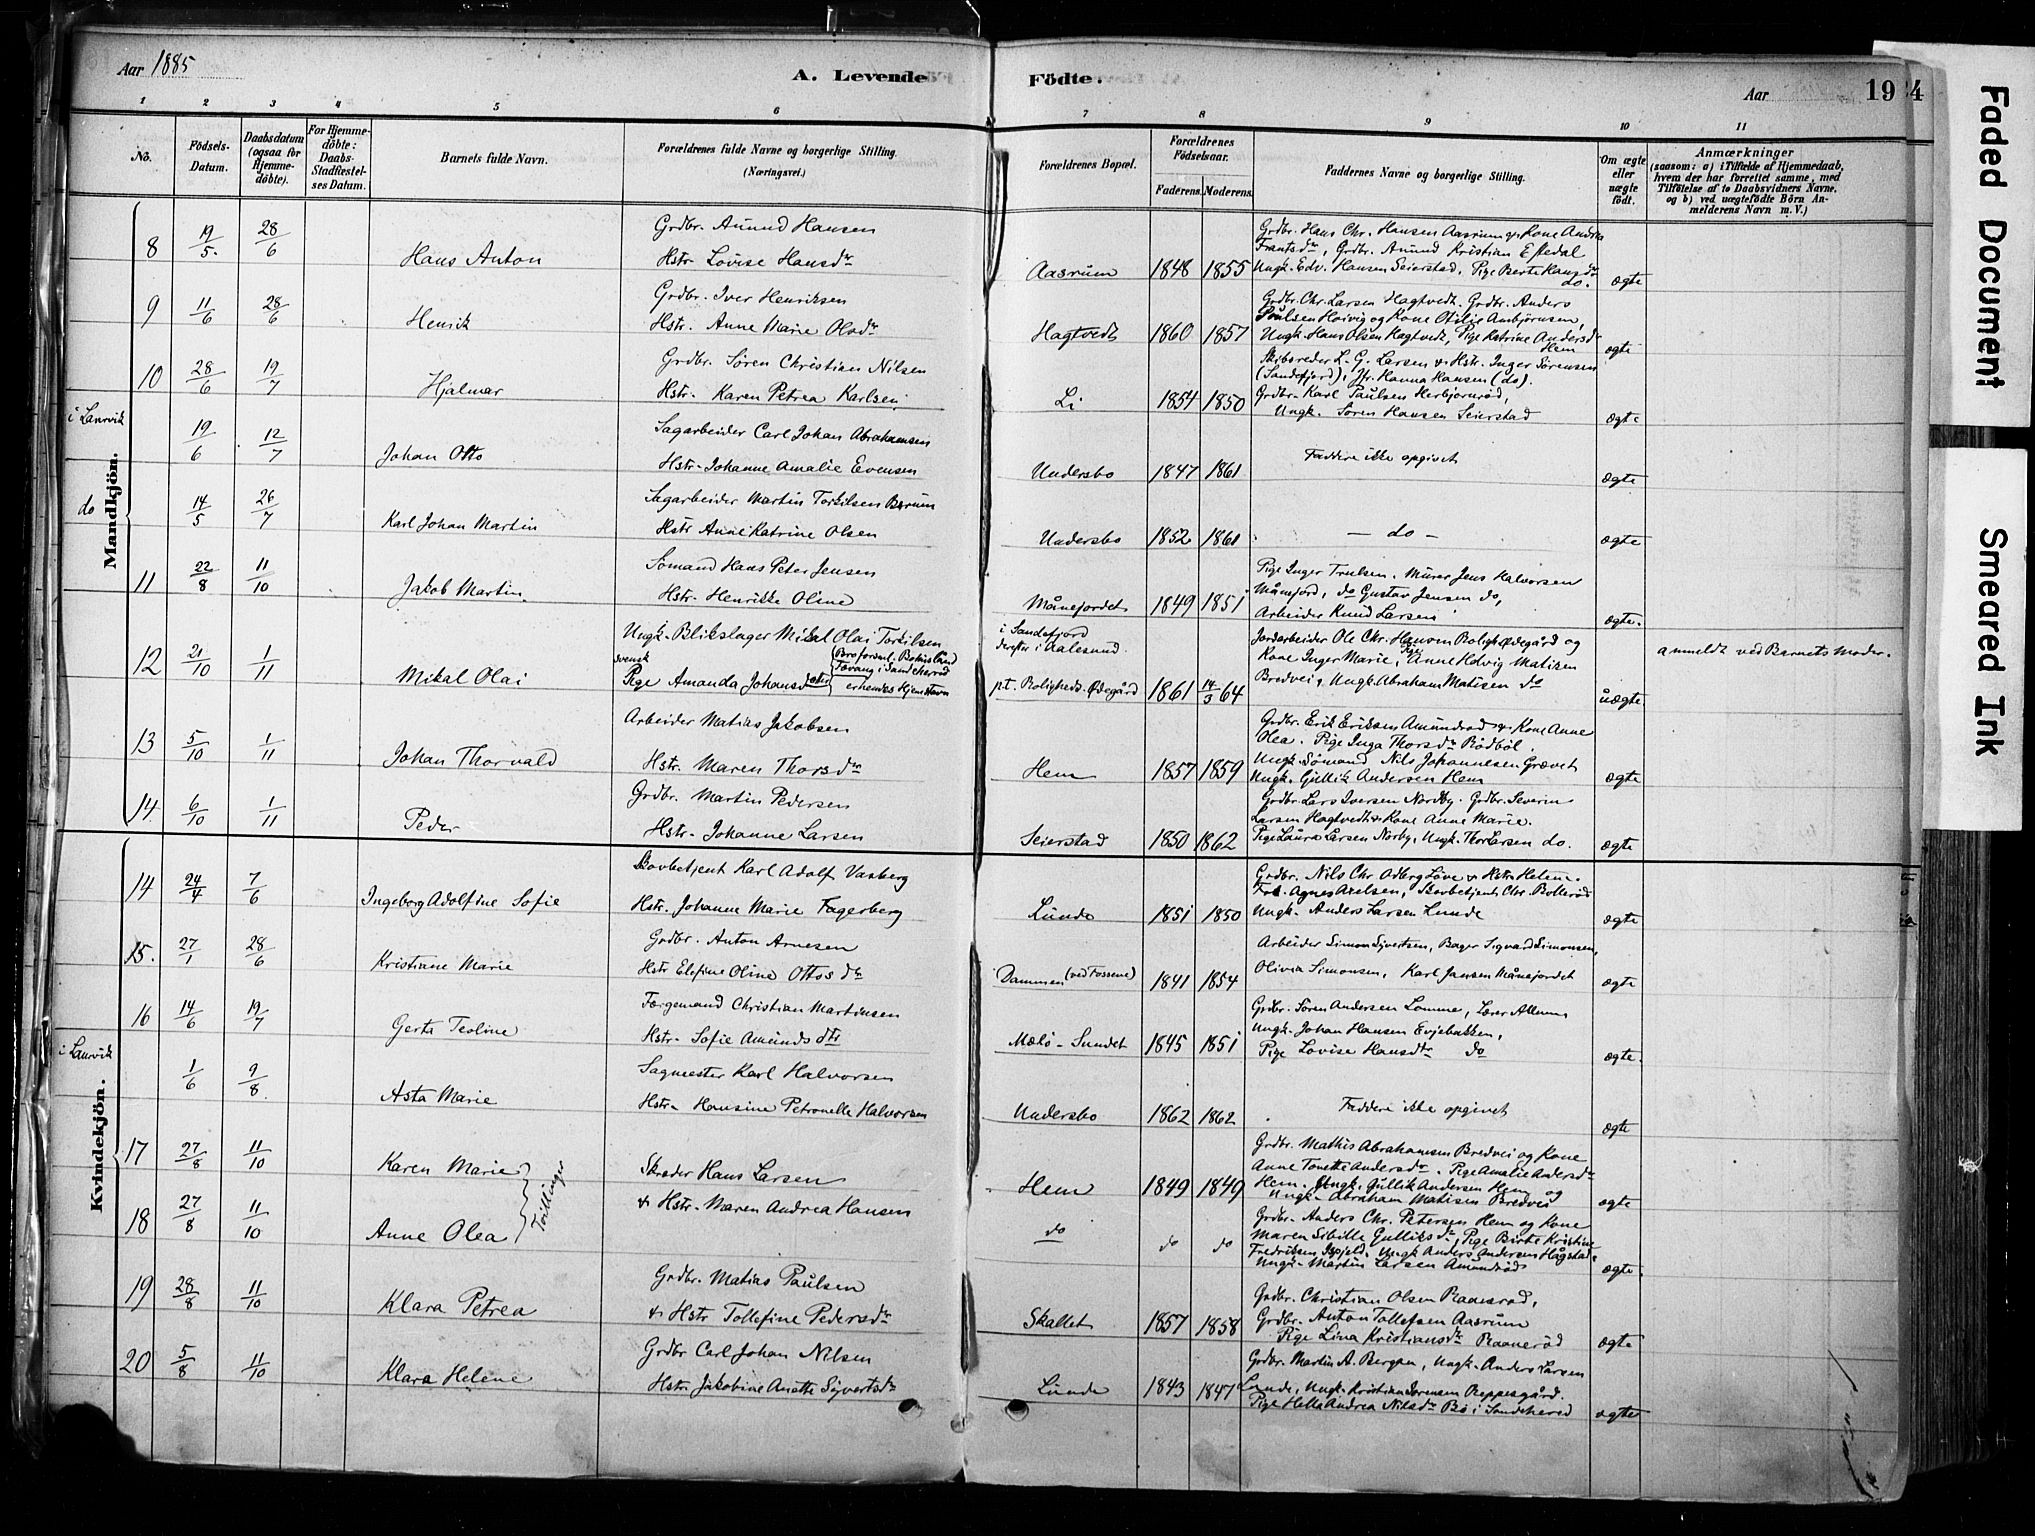 Aar 1885
A. Levende Födte.
Aar
19
4
1 2 3 4 5 6 7 8 9 10 11
No.
Födsels-Datum.
Daabsdatum (ogsaa for Hjemme-döbte).
For Hjemme-döbte: Daabs-Stadfæstel-ses Datum.
Barnets fulde Navn.
Forældrenes fulde Navne og borgerlige Stilling. (Næringsvei.)
Forældrenes Bopæl.
Forældrenes Födselsaar.
Faderens. Moderens.
Faddernes Navne og borgerlige Stilling.
Om ægte eller uægte födt.
Anmærkninger
(saasom: a) i Tilfælde af Hjemmedaab, hvem der har forrettet samme, med Tilföielse af to Daabsvidners Navne, og b) ved uægtefödte Börn An-melderens Navn m. V.)
Mandkjön.
8 19/5. 28/6 Hans Anton
Grdbr. Anund Hansen
Hstr. Lovise Hansdtr
Aasrum 1848 1855
Grdbr. Hans Chr. Hansen Aasrum og Kone Andrea
Frantsdtr, Grdbr. Anund Kristian Eftedal
Ungk. Edv. Hansen Seierstad, Pige Berte Hansdtr do.
ægte
9 11/6 28/6 Henrik
Grdbr. Iver Henriksen
Hstr. Anne Marie Olsdtr
Hagtvedt 1860 1857
Grdbr. Chr. Larsen Hagtvedt. Grdbr. Anders
Poulsen Hoivig og Kone Otilie Ambjörnsen,
Ungk. Hans Olsen Hagtvedt, Pige Katrine Andersdtr Hem
ægte
10 28/6 19/7 Hjalmar
Grdbr. Sören Christian Nilsen
Hstr. Karen Petrea Karlsen
Li 1854 1850
Skibsreder L. G. Larsen & Hstr. Inger Sörensen
(Sandefjord), Jfr. Hanna Hansen (do).
Grdbr. Karl Paulsen Herbjörnröd,
Ungk. Sören Hansen Seierstad
ægte
i Laurvik
19/6 12/7 Johan Otto
Sagarbeider Carl Johan Abrahamsen
Hstr. Johanne Amalie Evensen
Undersbo 1847 1861
Faddere ikke opgivet
ægte
do
14/5 26/7 Karl Johan Martin
Sagarbeider Martin Torkilsen Barum
Hstr Anne Katrine Olsen
Undersbo 1852 1861
— do —
ægte
11 22/8 11/10 Jakob Martin
Sömand Hans Peter Jensen
Hstr. Henrikke Oline
Månejordet 1849 1851
Pige Inger Trulsen. Murer Jens Halvorsen
Månejord, do Gustav Jensen do,
Arbeider Knud Larsen
ægte.
12 21/10 1/11 Mikal Olai
Ungk. Blikslager Mikal Olai Torkilsen
svensk
Pige Amanda Johansdatter
i Sandefjord
derefter i Aalesund.
pt. Roligheds-Ödegård 1861 14/3 64
Jordarbeider Ole Chr. Hansen Roligh. Ødegård og
Kone Inger Marie, Pige Anne Hedvig Matisen
Bredvei, Ungk. Abraham Matisen do
uægte
anmeldt ved Barnets Moder.
13 5/10 1/11 Johan Thorvald
Arbeider Matias Jakobsen
Hstr. Maren Thorsdtr
Hem 1857 1859
Grdbr. Erik Eriksen Amundröd & Kone Anne
Olea. Pige Inga Thorsdtr Rödböl.
Ungk. Sömand Nils Johannesen Grævet
Ungk. Gullik Andersen Hem
ægte
14 6/10 1/11 Peder
Grdbr. Martin Pedersen
Hstr. Johanne Larsen
Seierstad 1850 1862
Grdbr. Lars Iversen Nordby. Grdbr. Severin
Larsen Hagtvedt & Kone Anne Marie.
Pige Laura Larsen Norby, Ungk. Thor Larsen do.
ægte
Kvindekjön.
14 24/4 7/6 Ingeborg Adolfine Sofie
Skovbetjent Karl Adolf Vasberg
Hstr. Johanne Marie Fagerberg
Lunde 1851 1850
Grdbr. Nils Chr. Adberg Löve & Hstr Helene.
Frk. Agnes Axelsen, Skovbetjent Chr. Bolleröd
Ungk. Anders Larsen Lunde
ægte
15. 27/1 28/6 Kristiane Marie
Grdbr. Anton Arnesen
Hstr Elefine Oline Ottosdtr
Dammen (ved Fossene) 1841 1854
Arbeider Simon Syvertsen, Bager Sigvard Simonsen,
Olivia Simonsen, Karl Jansen Månejordet
ægte
16 14/6 19/7 Gerta Teoline
Færgemand Christian Martinsen
Hstr. Sofie Amundsdtr
Mælö-Sundet 1845 1851
Grdbr. Sören Andersen Lomme, Lærer Allum
Ungk. Johan Hansen Evjebakken,
Pige Lovise Hansdtr do
ægte.
i Laurvik
1/6 9/8. Asta Marie
Sagmester Karl Halvorsen
Hstr. Hansine Petronelle Halvorsen
Undersbo 1862 1862
Faddere ikke opgivet
ægte
17 27/8 11/10 Karen Marie
Tvillinger
Skræder Hans Larsen
Hem 1849 1849
Grdbr. Mathis Abrahamsen Bredvei og Kone
Anne Tonette Andersdtr. Pige Amalie Andersdtr
Hem. Ungk. Gullik Andersen Hem og
Ungk. Abraham Matisen Bredvei
ægte
18 27/8 11/10 Anne Olea
& Hstr. Maren Andrea Hansen
do do do
Grdbr. Anders Chr. Petersen Hem og Kone
Maren Sibille Gulliksdtr, Pige Birte Kristine
Fredriksen Ispjeld, Ungk Anders Andersen Hågstad,
Ungk. Martin Larsen Amundröd
ægte.
19 28/8 11/10 Klara Petrea
Grdbr. Matias Paulsen
& Hstr Tollefine Pedersdtr
Skallet 1857 1858
Grdbr. Christian Olsen Raaneröd,
Grdbr. Anton Tollefsen Aasrum
Pige Lina Kristiansdtr Raaneröd
ægte
20 5/8 11/10 Klara Helene
Grdbr Carl Johan Nilsen
Hstr. Jakobine Anette Syvertsdtr
Lunde 1843 1847
Grdbr. Martin A. Bergan, Ungk. Anders Larsen
Lunde, Ungk. Kristian Sörensen Preppesgård.
Pige Hella Andrea Nilsdtr Bö i Sandeherred
ægte
Faded Document
Smeared Ink